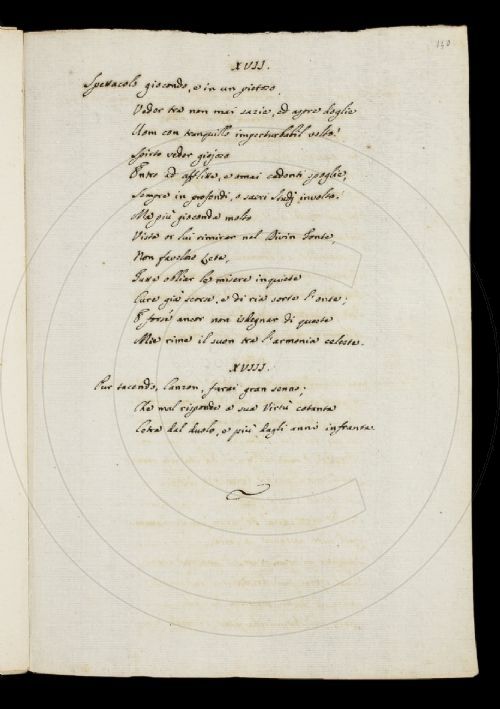 130
XVII.
Spettacolo giocondo, e in un pietoso,
Veder tra non mai sazie, ed aspre doglie
Uom con tranquillo imperturbabil volto!
Spirto veder giojoso
Entro ad afflitte, e omai cadenti spoglie,
Sempre in profondi, e sacri Studj involto!
Ma più gioconda molto
Vista or lui rimirar nel Divin Fonte,
Non favoloso Lete,
Pure obliar le misere inquiete
Cure già scorse, e di ria sorte l'onte;
E forse ancor non isdegnar di queste
Mie rime il suon tra l'armonia celeste.
XVIII.
Pur tacendo, Canzon, farai gran senno;
Che mal risponde a sua Virtù cotanta
Cetra dal duolo, e più dagli anni infranta.